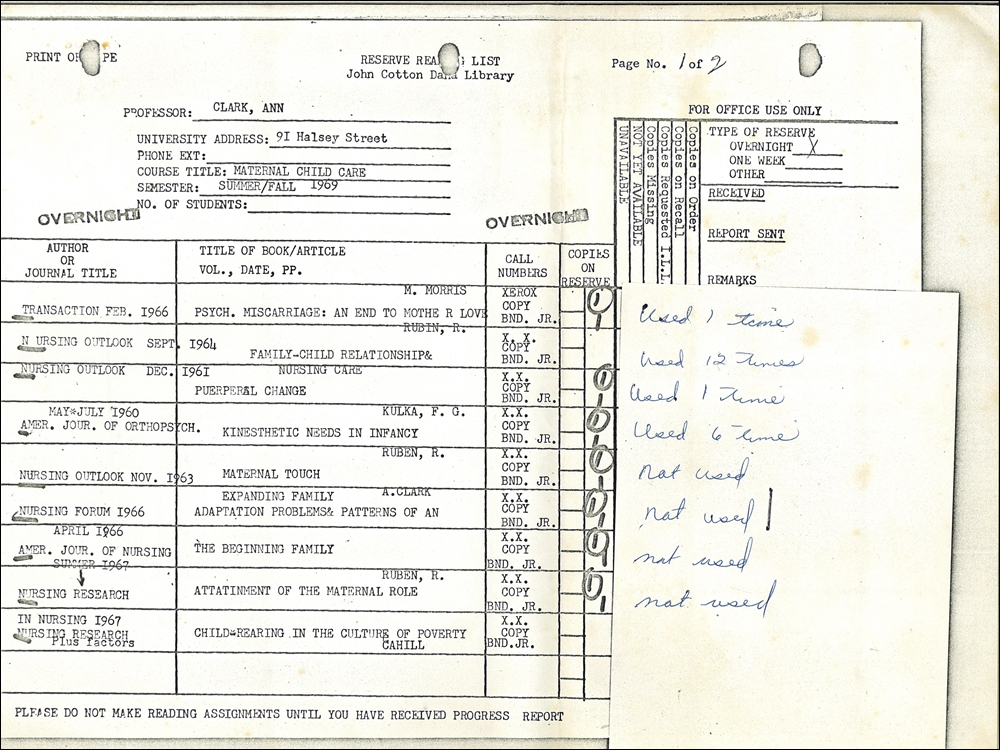 PRINT OR PE
RESERVE REA G LIST
John Cotton Dana Library
Page No. 1 of 2
PROFESSOR: CLARK, ANN
UNIVERSITY ADDRESS: 91 Halsey Street
PHONE EXT:
COURSE TITLE: MATERNAL CHILD CARE
SEMESTER: SUMMER/FALL 1969
NO. OF STUDENTS:
OVERNIGHT
OVERNIGHT
FOR OFFICE USE ONLY
TYPE OF RESERVE
OVERNIGHT X
ONE WEEK
OTHER
RECEIVED
REPORT SENT
REMARKS
Copies on Order
Copies on Recall
Copies Requested I.L.L
Copies Missing
NOT YET AVAILABLE
UNAVAILABLE
AUTHOR
OR
JOURNAL TITLE
TITLE OF BOOK/ARTICLE
VOL., DATE, PP.
CALL
NUMBERS
COPIES
ON
RESERVE
M. MORRIS
TRANSACTION FEB. 1966 PSYCH. MISCARRIAGE: AN END TO MOTHE R LOVE
XEROX
COPY
BND. JR. 1 1
Used 1 time
RUBIN, R.
N URSING OUTLOOK SEPT. 1964
FAMILY-CHILD RELATIONSHIP&
NURSING CARE
X. X.
COPY
BND. JR.
Used 12 times
NURSING OUTLOOK DEC. 1961
PUERPERAL CHANGE
X.X.
COPY
BND. JR. 1 1
Used 1 time
MAY*JULY 1960
AMER. JOUR. OF ORTHOPSYCH.
KULKA, F. G.
KINESTHETIC NEEDS IN INFANCY
X.X.
COPY
BND. JR. 1 1
Used 6 time
RUBEN, R.
NURSING OUTLOOK NOV. 1963
MATERNAL TOUCH
X.X.
COPY
BND. JR. 1 1
not used
EXPANDING FAMILY A.CLARK
NURSING FORUM 1966
ADAPTATION PROBLEMS& PATTERNS OF AN
X.X.
COPY
BND. JR. 1 1
not used
APRIL 1966
AMER. JOUR. OF NURSING
THE BEGINNING FAMILY
X.X.
COPY
BND. JR. 1 1
not used
SUMMER 1967
NURSING RESEARCH
RUBEN, R.
ATTATINMENT OF THE MATERNAL ROLE
X.X.
COPY
BND. JR. 1 1
not used
IN NURSING 1967
NURSING RESEARCH
Plus factors
CHILD*REARING IN THE CULTURE OF POVERTY
CAHILL
X.X.
COPY
BND.JR.
PLEASE DO NOT MAKE READING ASSIGNMENTS UNTIL YOU HAVE RECEIVED PROGRESS REPORT